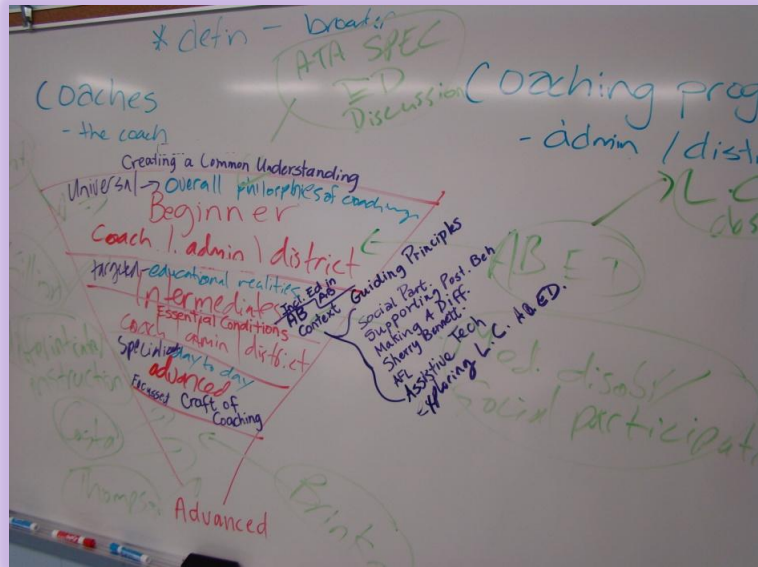 * defin - broader
ATA SPEC
ED
Discussion
Coaches
- the coach
Coaching prog
- admin / distr
L.C
obs
AB
ED
Creating a Common Understanding
Universal → Overall philosophies of coaching
Beginner
Coach / admin / district
targeted - educational realities
Intermediate
Essential Conditions
Coach admin / district
day to day
advanced
Focussed Craft of
Coaching
Incl. Ed in
AB
Context
Guiding Principles
Social Part.
Supporting Post. Beh
Making A Diff.
Sherry Bennett.
AFL
Assistive Tech
Exploring L.C. AB ED.
disabl /
Social participati
Thompson
Print
Advanced